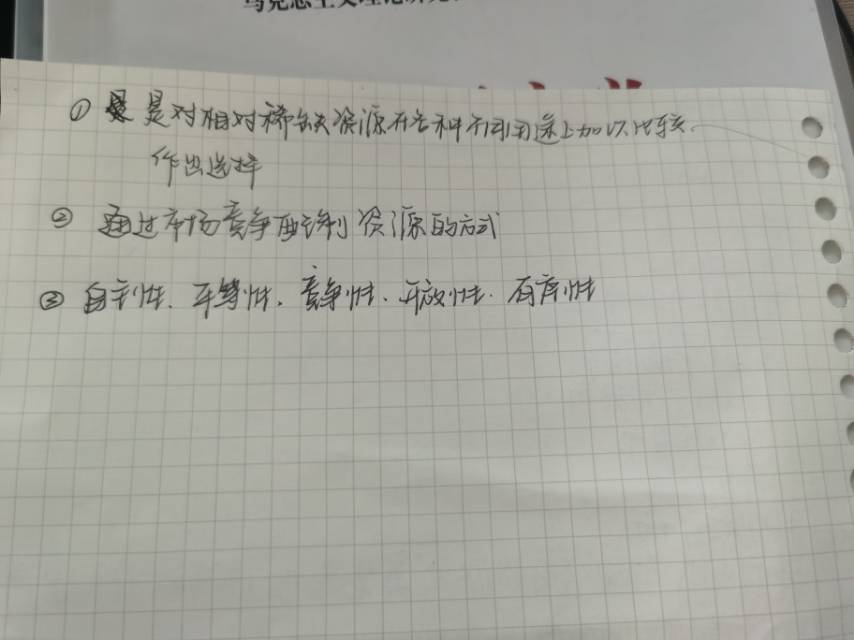 马克思主义理论研究
① 是对相对稀缺资源在各种不同用途上加以比较
作出选择
② 通过市场竞争配制资源的方式
③ 自主性、平等性、竞争性、开放性、有序性